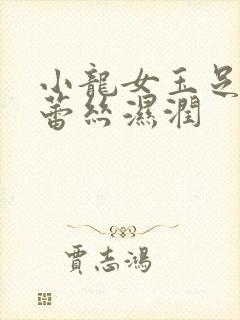 小龍女玉足
蕾絲濕潤
賈志鴻